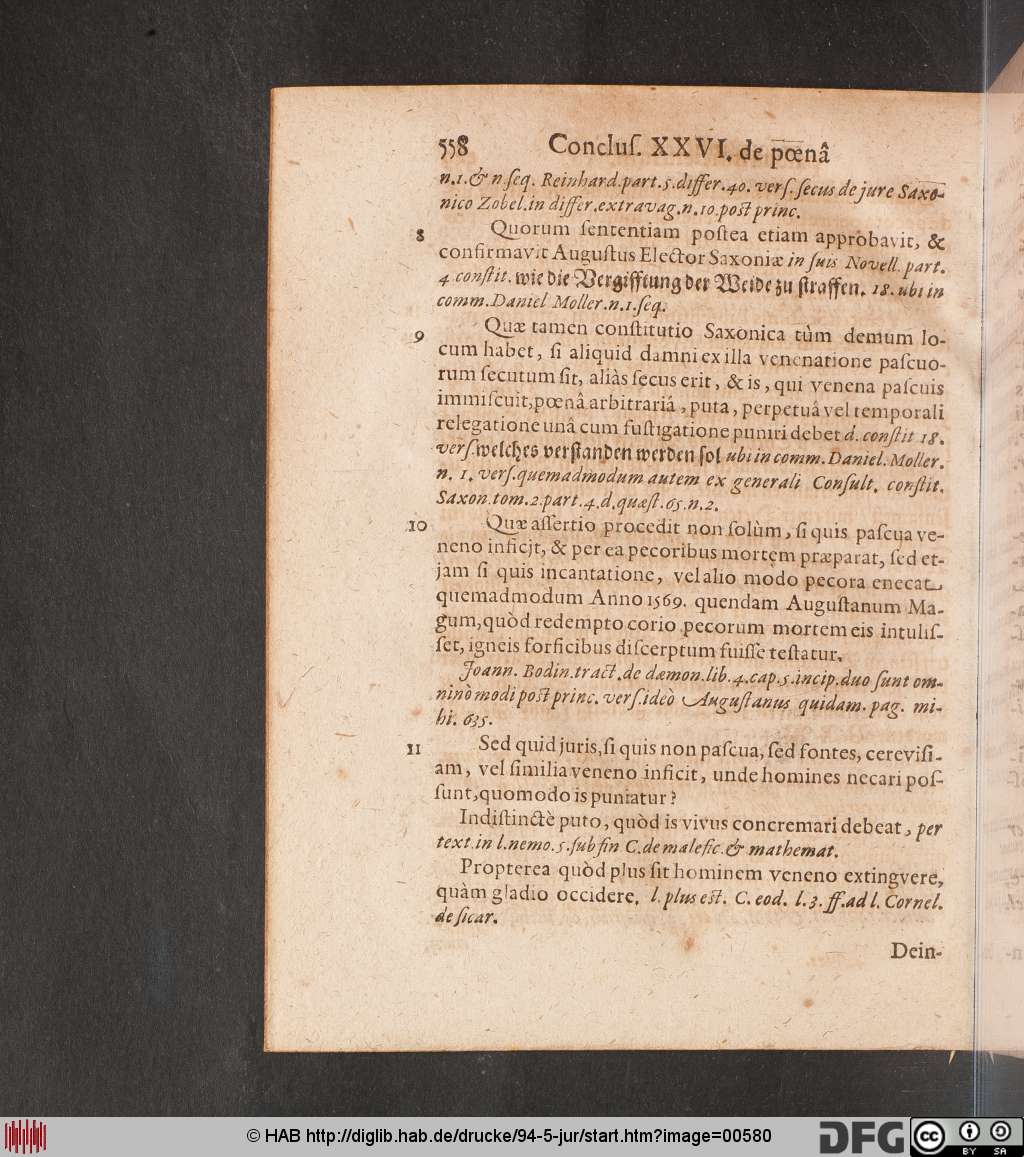 558 Concluſ. XXVI. de pœnâ
n.1.& n ſeq. Reinhard.part.5.differ.40. verſ.ſecus de jure Saxo-
nico Zobel.in differ.extravag.n.10.poſt princ.
8 Quorum ſententiam poſtea etiam approbavit, &
confirmavit Auguſtus Elector Saxoniæ in ſuis Novell. part.
4 conſtit. wie die Vergifftung der Weide zu ſtraffen. 18. ubi in
comm.Daniel Moller.n.1.ſeq.
9 Quæ tamen conſtitutio Saxonica tùm demum lo-
cum habet, ſi aliquid damni ex illa venenatione paſcuo-
rum ſecutum ſit, aliàs ſecus erit, & is, qui venena paſcuis
immiſcuit,pœnâ arbitrariâ, puta, perpetuâ vel temporali
relegatione unâ cum fuſtigatione puniri debet d. conſtit 18.
verſ.welches verſtanden werden ſol ubi in comm.Daniel.Moller.
n. 1. verſ.quemadmodum autem ex generali Conſult. conſtit.
Saxon.tom.2.part.4.d.quæſt.65.n.2.
10 Quæ aſſertio procedit non ſolùm, ſi quis paſcua ve-
neno inficit, & per ea pecoribus mortem præparat, ſed et-
jam ſi quis incantatione, vel alio modo pecora enecat
quemadmodum Anno 1569. quendam Auguſtanum Ma-
gum,quòd redempto corio pecorum mortem eis intuliſ-
ſet, igneis forficibus diſcerptum fuiſſe teſtatur.
Joann. Bodin.tract.de dæmon.lib.4.cap.5.incip.duo ſunt om-
ninò modi poſt princ. verſ.ideò Auguſtanus quidam. pag. mi-
hi. 635.
11 Sed quid juris,ſi quis non paſcua, ſed fontes, cereviſi-
am, vel ſimilia veneno inficit, unde homines necari poſ-
ſunt,quomodo is puniatur?
Indiſtinctè puto, quòd is vivus concremari debeat, per
text.in l.nemo.5.ſub fin C.de malefic.& mathemat.
Propterea quòd plus ſit hominem veneno extingvere,
quàm gladio occidere. l. plus eſt. C. eod. l.3. ff.ad l. Cornel.
de ſicar.
Dein-
© HAB http://diglib.hab.de/drucke/94-5-jur/start.htm?image=00580
DFG cc BY SA